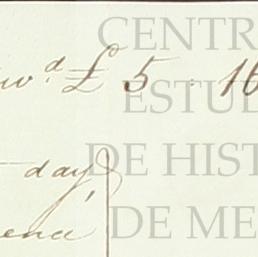 CENTR
£ 5 : 16
ESTU
day,
DE HIST
DE ME